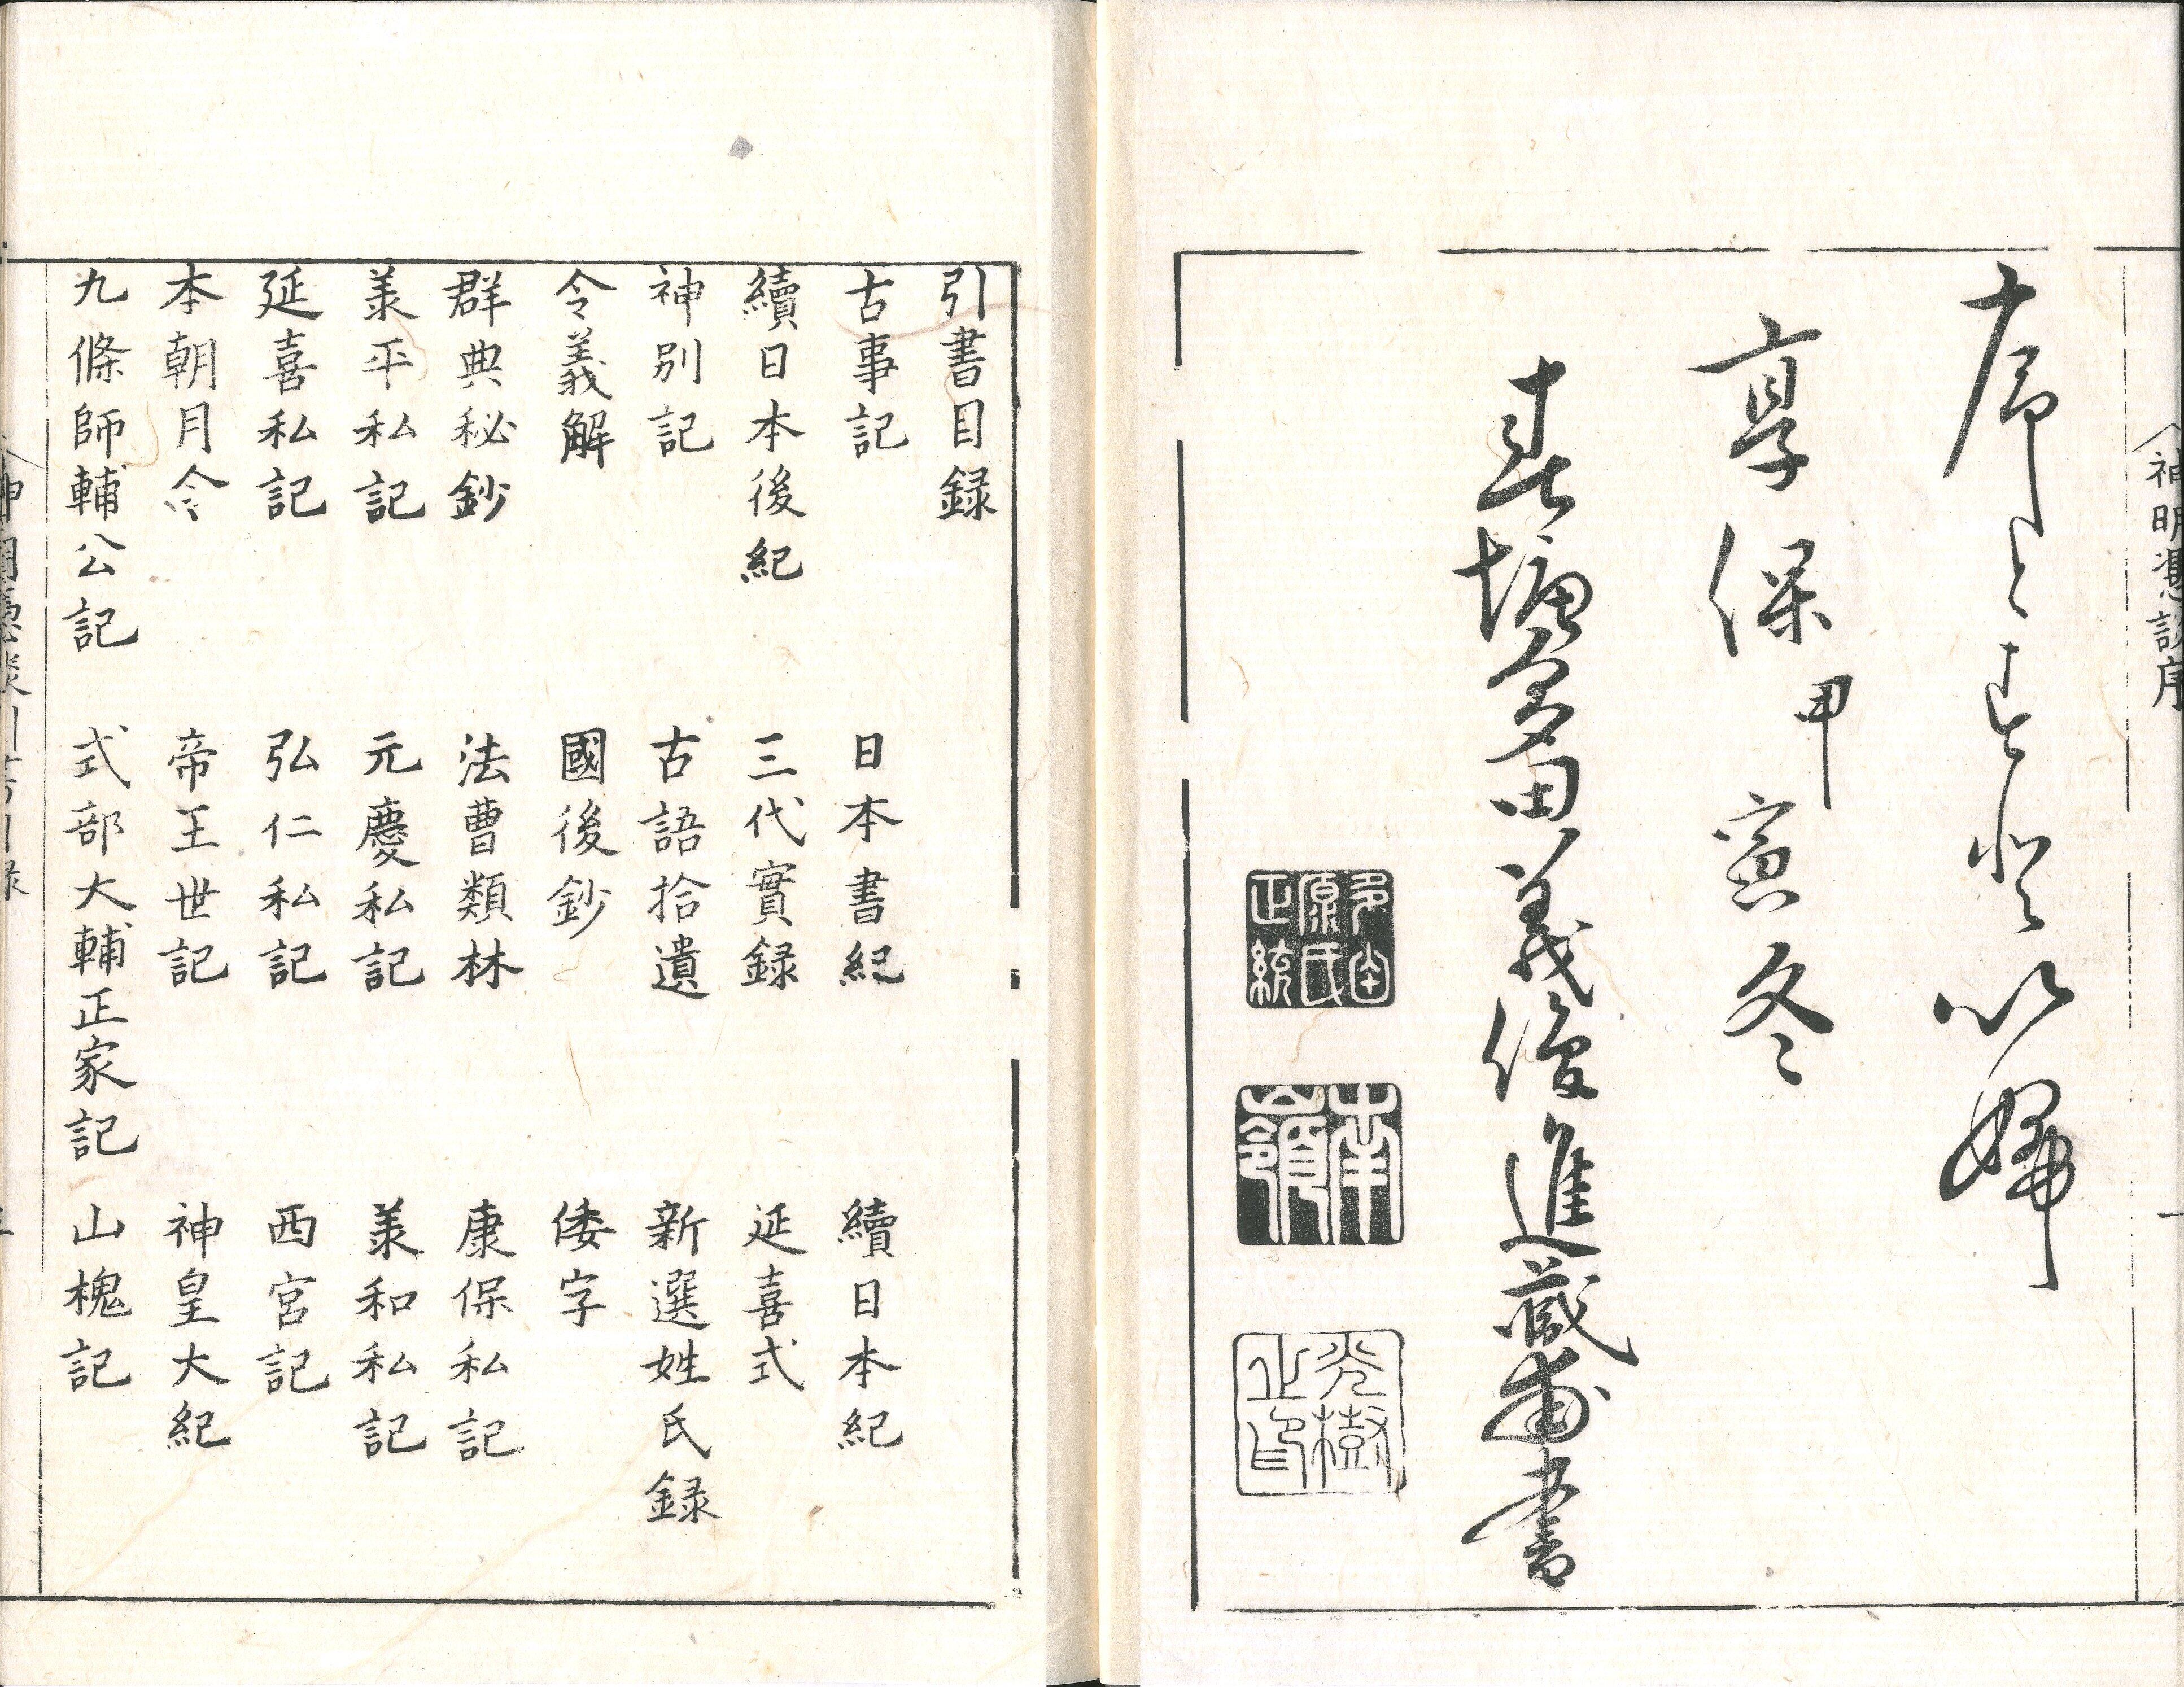 神明憑談序
序とす登以婦
享保甲寅冬
春塘多田義俊進蔵甫書
多田源氏正統
南嶺
引書目録
古事記　日本書紀　續日本紀
續日本後紀　三代實録　延喜式
神別記　古語拾遺　新選姓氏録
令義解　國後鈔　倭字
群典秘鈔　法曹類林　康保私記
承平私記　元慶私記　承和私記
延喜私記　弘仁私記　西宮記
本朝月令　帝王世記　神皇大紀
九條師輔公記　式部大輔正家記　山槐記